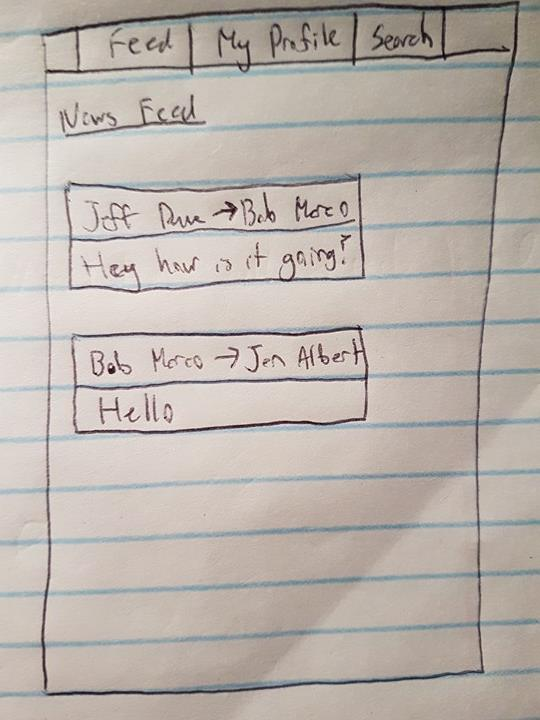 Feed My Profile Search
News Feed
Jeff Dave → Bob Marco
Hey how is it going?
Bob Marco → Jen Albert
Hello